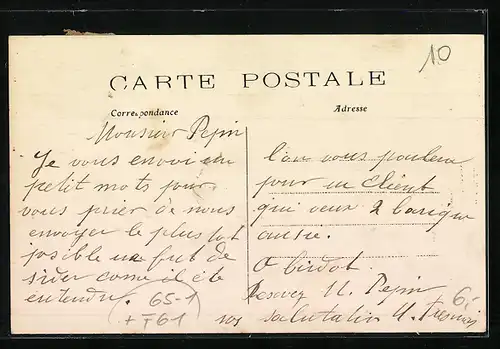 10
CARTE POSTALE
Correspondance
Adresse
Monsieur Pepin
Je vous envoi un
petit mots pour
vous prier de nous
envoyer le plus tot
posible un fut de
sider come il été
entendu.
65-1
+ F61
l'on vous
pour un client
qui veux 2 barique
ausie.
Resevez M. Pepin
nos salutation M.
6,-